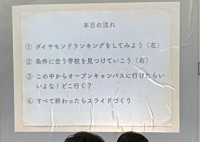 本日の流れ
① ダイヤモンドランキングをしてみよう（左）
② 条件に合う学校を見つけていこう（右）
③ この中からオープンキャンパスに行けたらい
いよな！どこ行く？
④ すべて終わったらスライドづくり